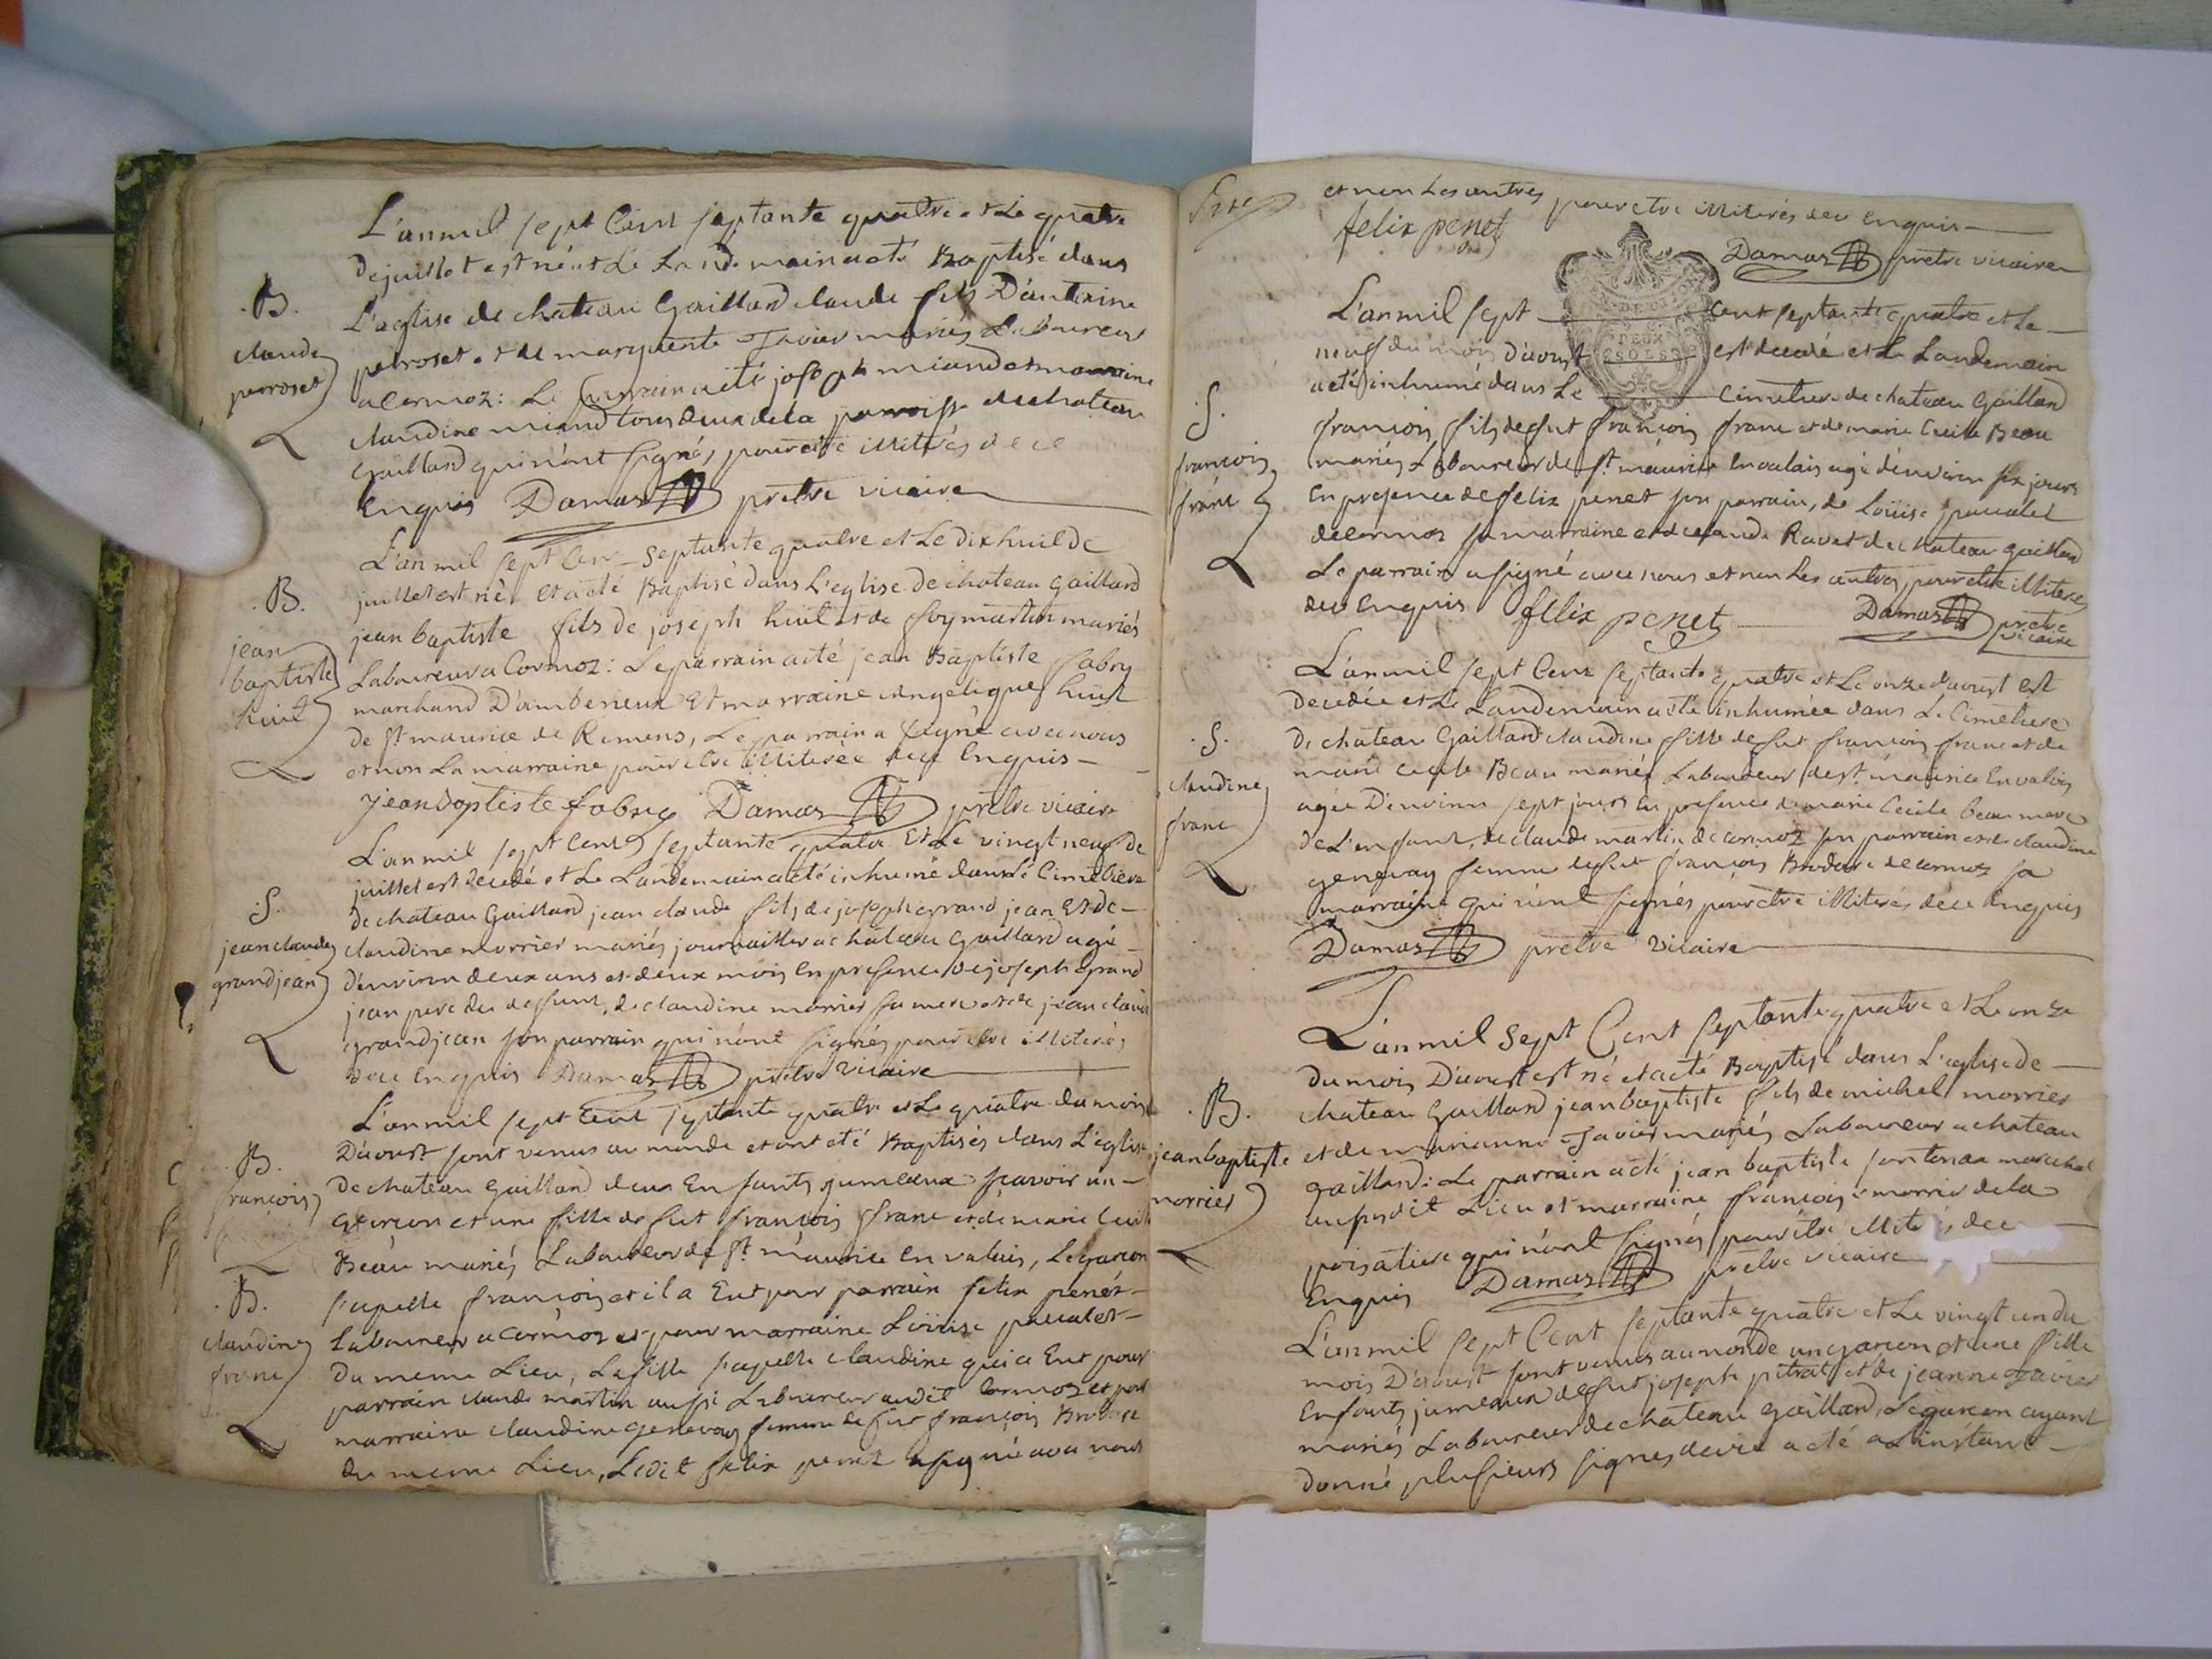 L'an mil sept Cent septante quatre et Le quatre
de juillet est né et Le Landemain a eté Baptisé dans
L'eglise de chateau Gaillard claude fils D'antoine
perroset et de marguerite javier mariés Laboureur
a Cormoz: Le parrain a eté joseph miand et marraine
claudine miand tous deux de la parroisse de chateau
Gaillard qui n'ont signé, pour etre illiterés de ce
Enquis Damas prêtre vicaire
.B.
claude
perroset
L'an mil sept Cent septante quatre et Le dix huit de
juillet est né et a eté Baptisé dans L'eglise de chateau Gaillard
jean baptiste fils de joseph huit et de foy martin mariés
Laboureur a Cormoz: Le parrain a eté jean Baptiste fabry
marchand D'amberieux Et marraine angelique huit
de st maurice de Remens, Le parrain a signé avec nous
et non La marraine pour etre illiterée de ce Enquis
jean baptiste fabry Damas prêtre vicaire
.B.
jean
baptiste
huit
L'an mil sept Cent septante quatre Et Le vingt neuf de
juillet est decedé et Le Landemain a eté inhumé dans Le Cimetiere
de chateau Gaillard jean claude fils de joseph grand jean Et de
claudine morrier mariés journaillier a chateau Gaillard agé
d'environ deux ans et deux mois En presence de joseph grand
jean pere du defunt, de claudine morrier sa mere et de jean claude
grandjean son parrain qui n'ont signés pour etre illiterés
de ce Enquis Damas prêtre vicaire
.S.
jean claude
grandjean
L'an mil sept Cent septante quatre et Le quatre du mois
D'aoust sont venus au monde et ont eté Baptisés dans L'eglise
de chateau Gaillard deux Enfants jumeaux sçavoir un
Garçon et une fille de fut françois franc et de marie Cecile
Beau mariés Laboureur de st maurice En valais, Le garçon
s'apelle françois et il a Eut pour parrain felix penet
Laboureur a Cormoz et pour marraine Loüise paualet
du meme Lieu, La fille s'apelle claudine qui a Eut pour
parrain claude martin aussi Laboureur audit Cormoz et pour
marraine claudine genevay femme de fut françois Brodure
du meme Lieu, Ledit felix penet a signé avec nous
.B.
françois
.B.
claudine
franc
et non Les autres pour etre illiterés de ce Enquis
felix penet Damas prêtre vicaire
L'an mil sept Cent septante quatre et Le
neuf du mois D'aoust est decedé et Le Landemain
a eté inhumé dans Le Cimetiere de chateau Gaillard
françois fils de fut françois franc et de marie Cecile Beau
mariés Laboureur de st maurice En valais agé d'environ six jours
En presence de felix penet son parrain, de Loüise paualet
de Cormoz sa marraine et de claude Ravet de chateau gaillard
Le parrain a signé avec nous et non Les autres, pour etre illiterés
de ce Enquis felix penet Damas prêtre
vicaire
.S.
françois
franc
DEUX
SOLS
L'an mil sept Cent septante quatre et Le onze d'aoust est
decedée et Le Landemain a eté inhumée dans Le Cimetiere
de chateau Gaillard claudine fille de fut françois franc et de
marie cecile Beau mariés Laboureur de st maurice En valais
agée D'environ sept jours En presence de marie Cecile beau mere
de L'enfant, de claude martin de cormoz son parrain et de claudine
genevay femme de fut françois Brodure de cormoz sa
marraine qui n'ont signés pour etre illiterés de ce Enquis
Damas prêtre vicaire
.S.
claudine
franc
L'an mil sept Cent septante quatre et Le onze
du mois D'aoust est né et a eté Baptisé dans L'eglise de
chateau Gaillard jean baptiste fils de michel morrier
et de marianne javier mariés Laboureur a chateau
gaillard: Le parrain a eté jean baptiste fontenar marechal
au susdit Lieu et marraine françoise morrier de la
poisatiere qui n'ont signés pour être illiterés de ce
Enquis Damas prêtre vicaire
.B.
jean baptiste
morrier
L'an mil sept Cent septante quatre et Le vingt un du
mois D'aoust sont venus au monde un garçon et une fille
Enfants jumeaux de fut joseph pitrat et de jeanne javier
mariés Laboureur de chateau gaillard, Le garçon ayant
donné plusieurs signes de vie a eté a L'instant